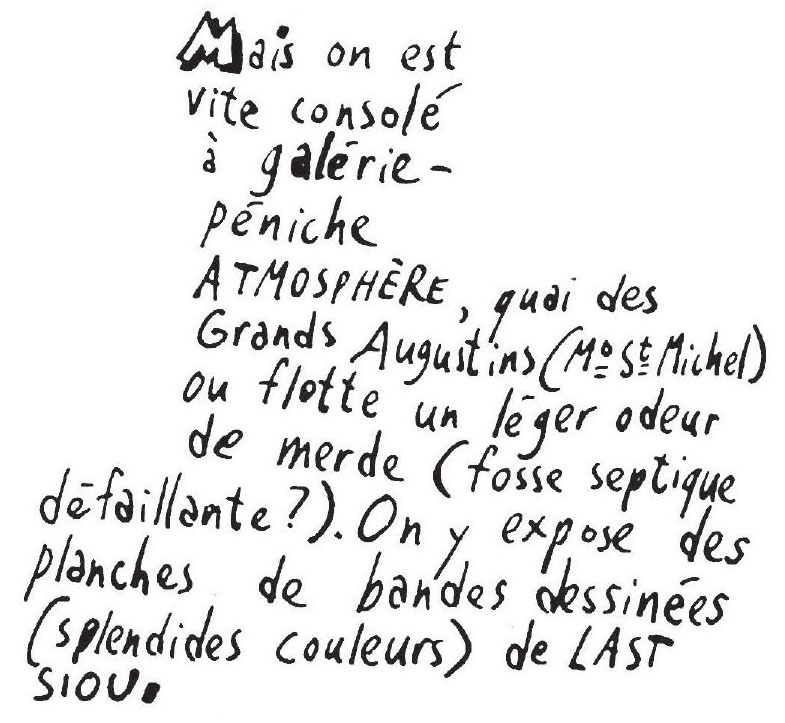 Mais on est
vite consolé
à galérie-
péniche
ATMOSPHÈRE, quai des
Grands Augustins (Mº St Michel)
ou flotte un léger odeur
de merde (fosse septique
défaillante?). On y expose des
planches de bandes dessinées
(splendides couleurs) de LAST
SIOU.